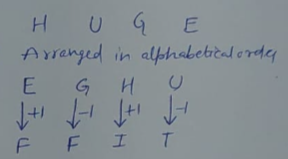 H U G E
Arranged in alphabetical order
E G H U
↓+1 ↓-1 ↓+1 ↓-1
F F I T